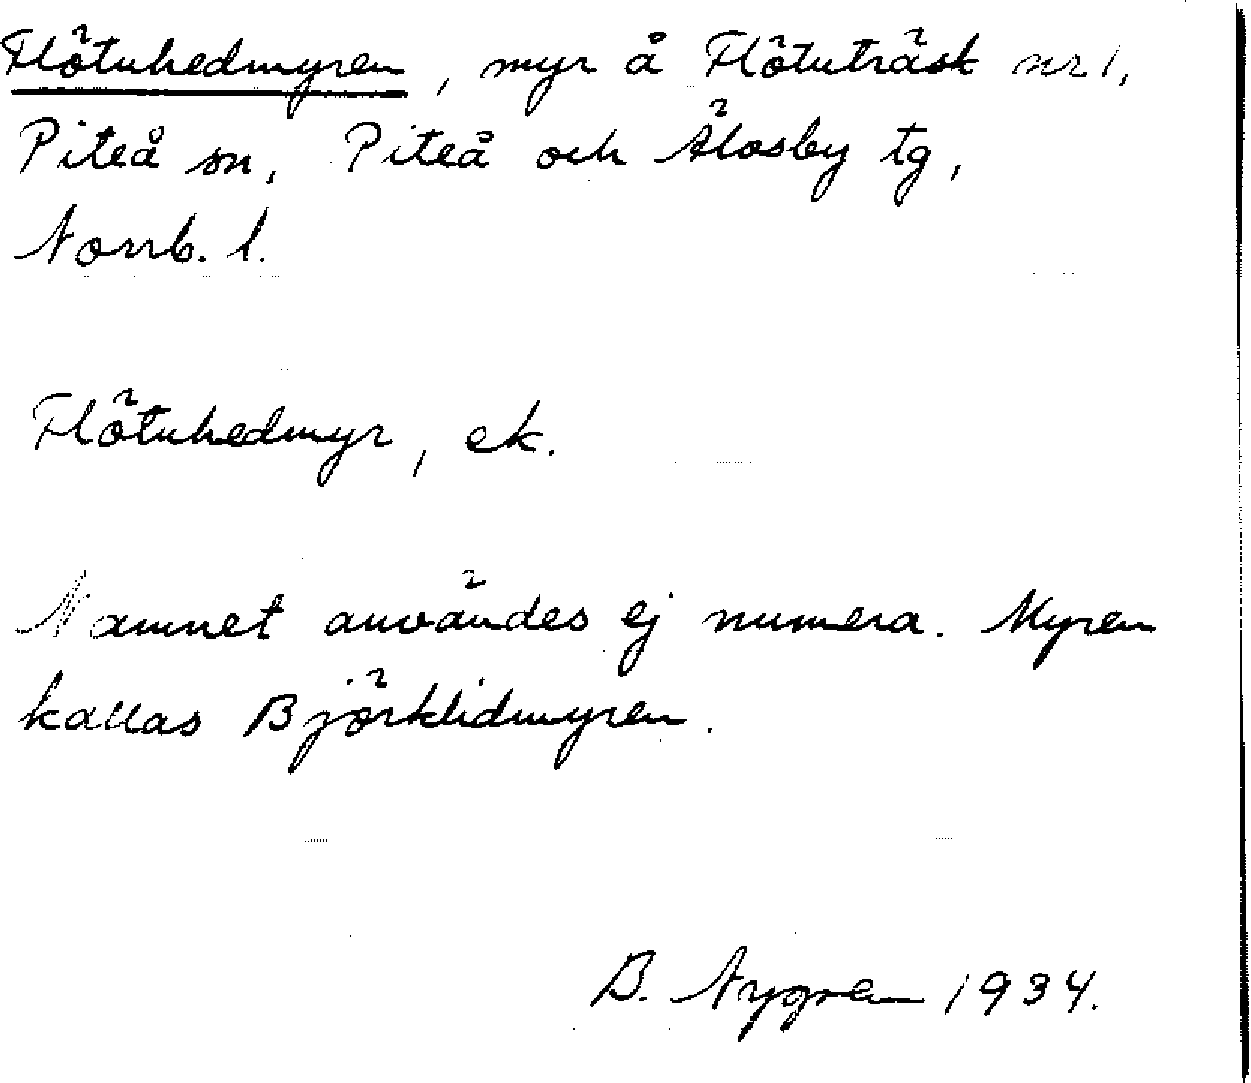 Flötuhedmyren, myr å Flötuträsk nr 1,
Piteå sn, Piteå och Älvsby tg,
Norrb. l.
Flötuhedmyr, ek.
Namnet användes ej numera. Myren
kallas Björklidmyren.
B. Nygren 1934.